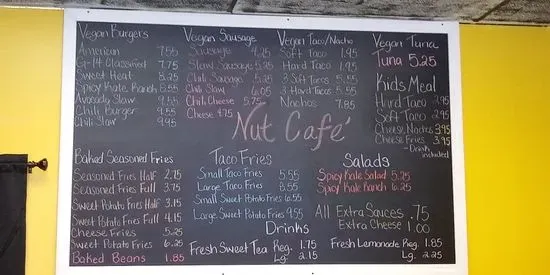 Vegan Burgers
American 7.55
G-14 Classified 7.75
Sweet Heat 8.25
Spicy Kale Ranch 8.55
Avocado Slaw 9.55
Chili Burger 9.55
Chili Slaw 9.95
Vegan Sausage
Sausage 4.25
Slaw Sausage 5.25
Chili Sausage 5.25
Chili Slaw 6.05
Chili Cheese 5.75
Cheese 4.75
Vegan Taco/Nacho
Soft Taco 1.95
Hard Taco 1.95
3 Soft Tacos 5.55
3 Hard Tacos 5.55
Nachos 7.85
Vegan Tuna
Tuna 5.25
Kids Meal
Hard Taco 2.95
Soft Taco 2.95
Cheese Nachos 3.95
Cheese Fries 3.95
- Drink
included
Nut Café
Baked Seasoned Fries
Seasoned Fries Half 2.75
Seasoned Fries Full 3.75
Sweet Potato Fries Half 3.15
Sweet Potato Fries Full 4.15
Cheese Fries 5.25
Sweet Potato Fries 6.25
Baked Beans 1.85
Taco Fries
Small Taco Fries 5.55
Large Taco Fries 8.55
Small Sweet Potato Fries 6.55
Large Sweet Potato Fries 9.55
Salads
Spicy Kale Salad 5.25
Spicy Kale Ranch 6.25
All Extra Sauces .75
Extra Cheese 1.00
Drinks
Fresh Sweet Tea Reg. 1.75
Lg. 2.15
Fresh Lemonade Reg. 1.85
Lg. 2.25